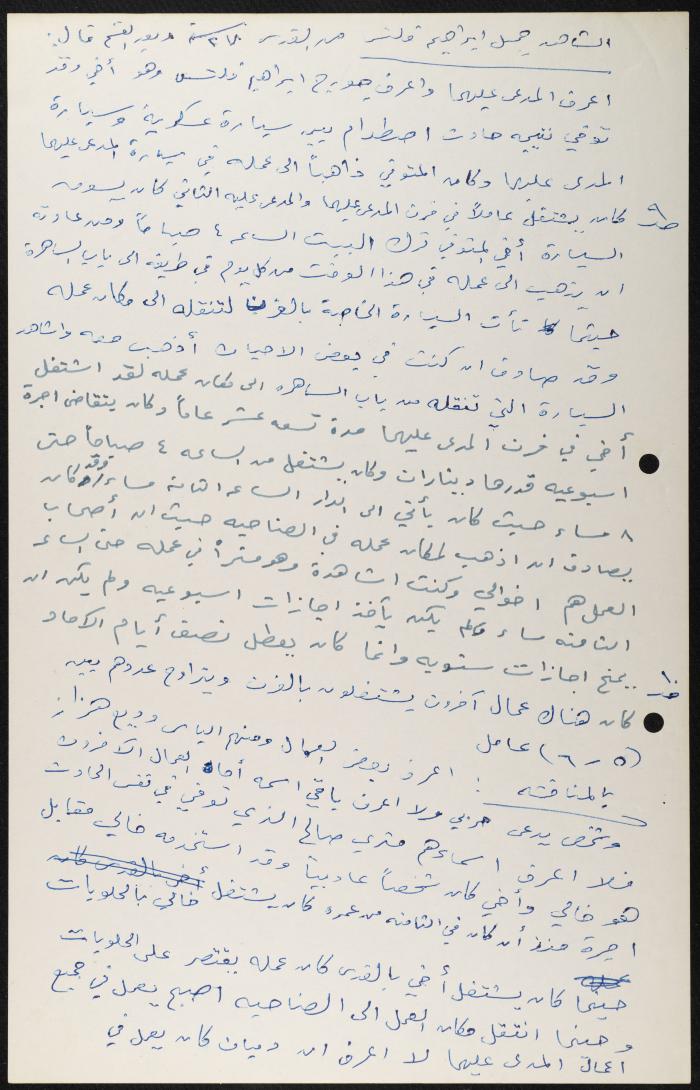 الشاهد جميل ابراهيم فلتس من القدس وبعد القسم قال:
اعرف المدعى عليهما واعرف جورج ابراهيم فلتس وهو أخي وقد
توفي نتيجة حادث اصطدام بين سيارة عسكرية وسيارة
المدعى عليهما وكان المتوفي ذاهباً الى عمله في سيارة المدعى عليهما
كان يشتغل عاملاً في فرن المدعى عليهما والمدعى عليه الثاني كان يسوق
السيارة أخي المتوفي ترك البيت الساعه ٤ صباحاً ومن عادته
ان يذهب الى عمله في هذا الوقت من كل يوم في طريقه الى باب الساهرة
حيثما تأت السيارة الخاصة بالفرن لتنقله الى مكان عمله
وقد صادف ان كنت في بعض الاحيان أذهب معه واشاهد
السيارة التي تنقله من باب الساهره الى مكان عمله لقد اشتغل
أخي في فرن المدعى عليهما مدة تسعه عشر عاماً وكان يتقاضى اجرة
اسبوعيه قدرها دينارات وكان يشتغل من الساعه ٤ صباحاً حتى
٨ مساء حيث كان يأتي الى الدار الساعه الثامنة مساء وقد كان
يصادف ان اذهب لمكان عمله في الصناعيه حيث ان أصحاب
العمل هم اخوالي وكنت اشاهدة وهو في عمله حتى الساعه
الثامنه مساء ولم يكن يأخذ اجازات اسبوعيه ولم يكن
يمنح اجازات سنويه وانما كان يعطل نصف أيام الآحاد
كان هناك عمال آخرون يشتغلون بالفرن ويتراوح عددهم بين
(٥ - ٦) عامل
بالمناقشه : اعرف بعض العمال ومنهم الياس وديع هزاز
وشخص يدعى حربي ولا اعرف باقي اسمه أما العمال الآخرون
فلا اعرف اسماءهم متري صالح الذي توفي في نفس الحادث
هو خالي وأخي كان شخصاً عادياً وقد استخدمه خالي مقابل
اجرة منذ أن كان في الثامنه من عمره كان يشتغل خالي بالحلويات
حينما كان يشتغل أخي بالقدس كان عمله يقتصر على الحلويات
وحينما انتقل مكان العمل الى الصناعيه اصبح يعمل في جميع
اعمال المدعى عليهما لا اعرف ان كان يعمل في